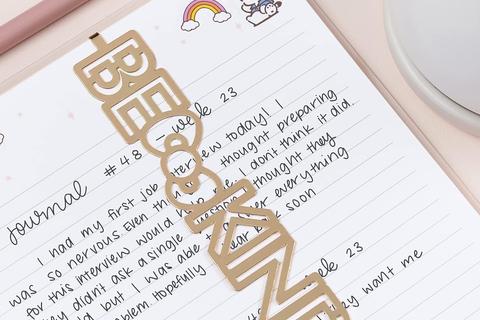 BE
KIN
Journal #48 - week 23
I had my first job interview today! I
was so nervous. Even thought preparing
for this interview would help me I don't think it did.
didn't ask a single question thought they
but I was able answer everything
problem. Hopefully hear back soon
week 23
want me